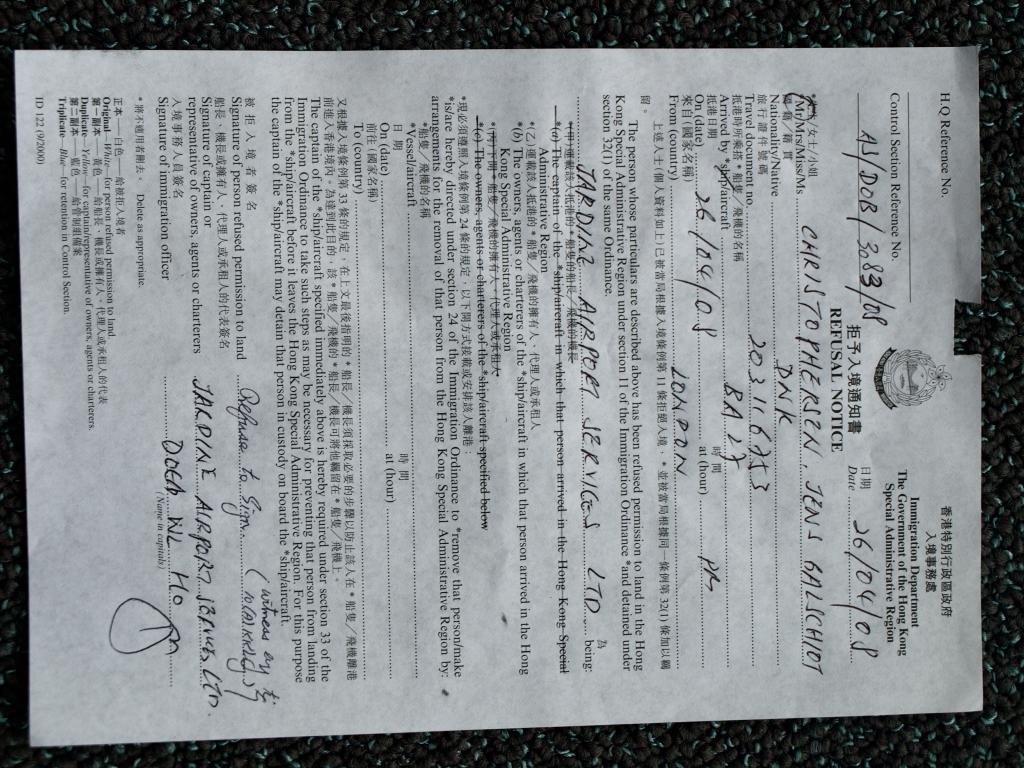 香港特別行政區政府
入境事務處
Immigration Department
The Government of the Hong Kong
Special Administrative Region
H.Q Reference No.
Control Section Reference No.
AJ/DOB/3083/08
拒予入境通知書
REFUSAL NOTICE
日期
Date 26/04/08
*先生/女士/小姐
*Mr/Mrs/Miss/Ms CHRISTOPHERSEN, JENS GALSCHIOT
國籍/籍貫
Nationality/Native DNK
旅行證件號碼
Travel document no. 203116753
抵港時所乘搭*船隻/飛機的名稱
Arrived by *ship/aircraft BA 27
抵港日期 時間
On (date) 26/04/08 at (hour) PM
來自(國家名稱)
From (country) LONDON
上述人士(個人資料如上)已被當局根據入境條例第11條拒絕入境,*並被當局根據同一條例第32(1)條加以羈
留。
The person whose particulars are described above has been refused permission to land in the Hong
Kong Special Administrative Region under section 11 of the Immigration Ordinance *and detained under
section 32(1) of the same Ordinance.
JARDINE AIRPORT SERVICES LTD. 為
being:
*(甲)運載該人抵港的*船隻的船長/飛機的機長
*(a) The captain of the *ship/aircraft in which that person arrived in the Hong Kong Special
Administrative Region
*(乙)運載該人抵港的*船隻/飛機的擁有人、代理人或承租人
*(b) The owners, agents or charterers of the *ship/aircraft in which that person arrived in the Hong
Kong Special Administrative Region
*(丙)下開*船隻/飛機的擁有人、代理人或承租人
*(c) The owners, agents or charterers of the *ship/aircraft specified below
*現必須遵照入境條例第24條的規定,以下開方式接載或安排該人離港:
*is/are hereby directed under section 24 of the Immigration Ordinance to *remove that person/make
arrangements for the removal of that person from the Hong Kong Special Administrative Region by:
*船隻/飛機的名稱
*Vessel/aircraft
日期 時間
On (date) at (hour)
前往(國家名稱)
To (country)
又根據入境條例第33條的規定,在上文最後指明的*船長/機長須採取必要的步驟以防止該人在*船隻/飛機離港
前進入香港境內。為達到此目的,該*船隻/飛機的*船長/機長可將他羈留在*船隻/飛機上。
The captain of the *ship/aircraft specified immediately above is hereby required under section 33 of the
Immigration Ordinance to take such steps as may be necessary for preventing that person from landing
from the *ship/aircraft before it leaves the Hong Kong Special Administrative Region. For this purpose
the captain of the *ship/aircraft may detain that person in custody on board the *ship/aircraft.
被拒入境者簽名
Signature of person refused permission to land Refuse to Sign. (witness by
船長、機長或擁有人、代理人或承租人的代表簽名
Signature of captain or
representative of owners, agents or charterers JARDINE AIRPORT SERVICES LTD.
入境事務人員簽名
Signature of immigration officer
HO
(Name in capitals)
*將不適用者刪去。 Delete as appropriate.
正本——白色——給被拒入境者
Original—White—for person refused permission to land.
第一副本——黃色——給船長、機長或擁有人、代理人或承租人的代表
Duplicate—Yellow—for captain/representative of owners, agents or charterers.
第二副本——藍色——給管制組備案
Triplicate—Blue—for retention in Control Section.
ID 122 (9/2000)